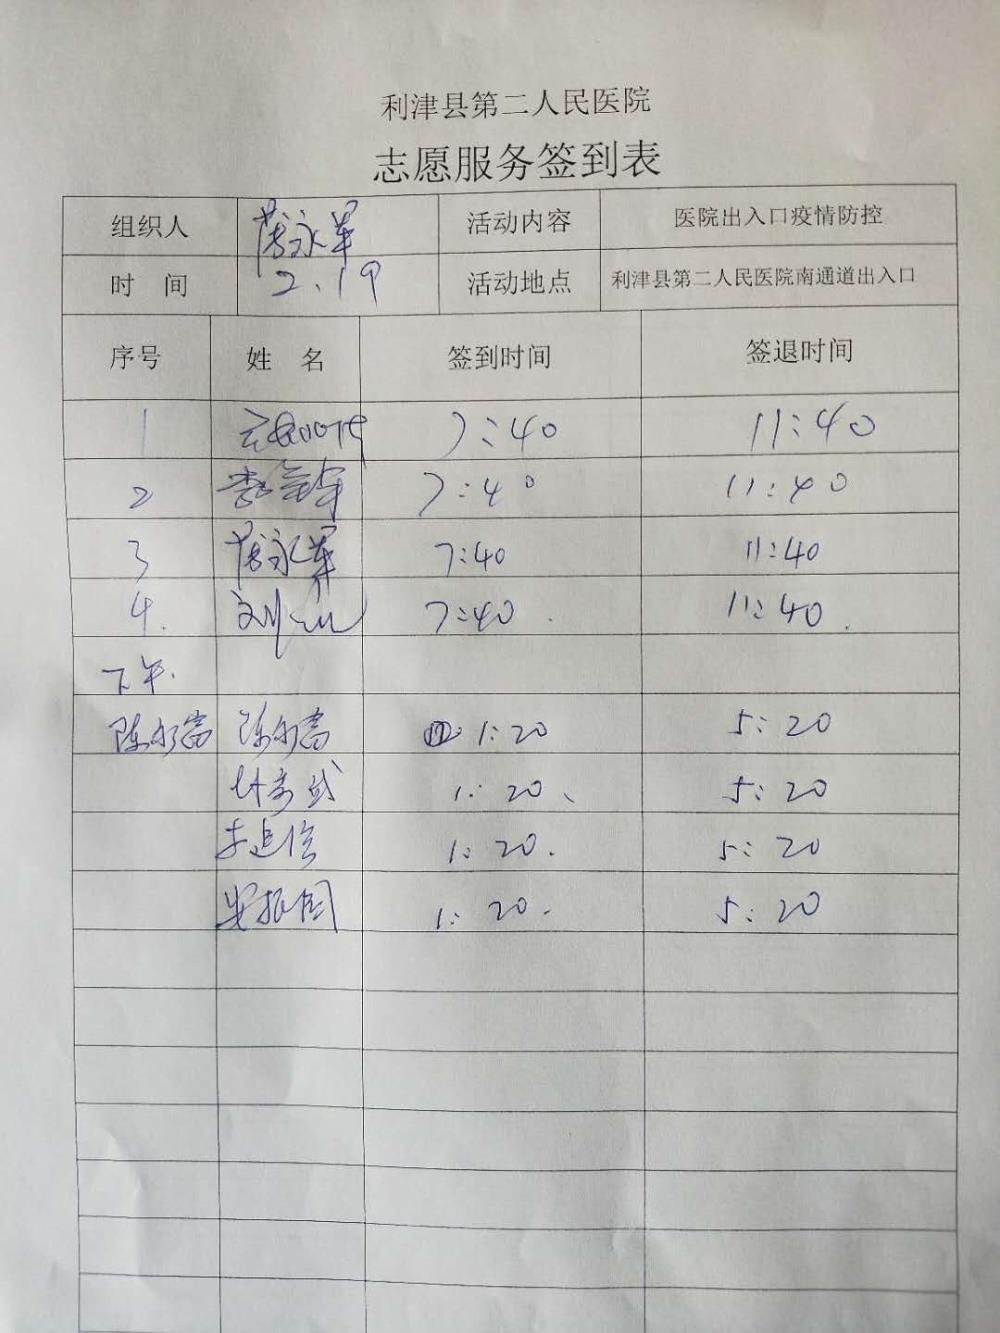 利津县第二人民医院
志愿服务签到表
组织人 薄永军 活动内容 医院出入口疫情防控
时 间 2.19 活动地点 利津县第二人民医院南通道出入口
序号 姓 名 签到时间 签退时间
1 7:40 11:40
2 7:40 11:40
3 薄永军 7:40 11:40
4. 刘 7:40. 11:40.
下午.
陈永富 陈永富 1:20 5:20
1:20、 5:20
李追信 1:20. 5:20
安振国 1:20. 5:20